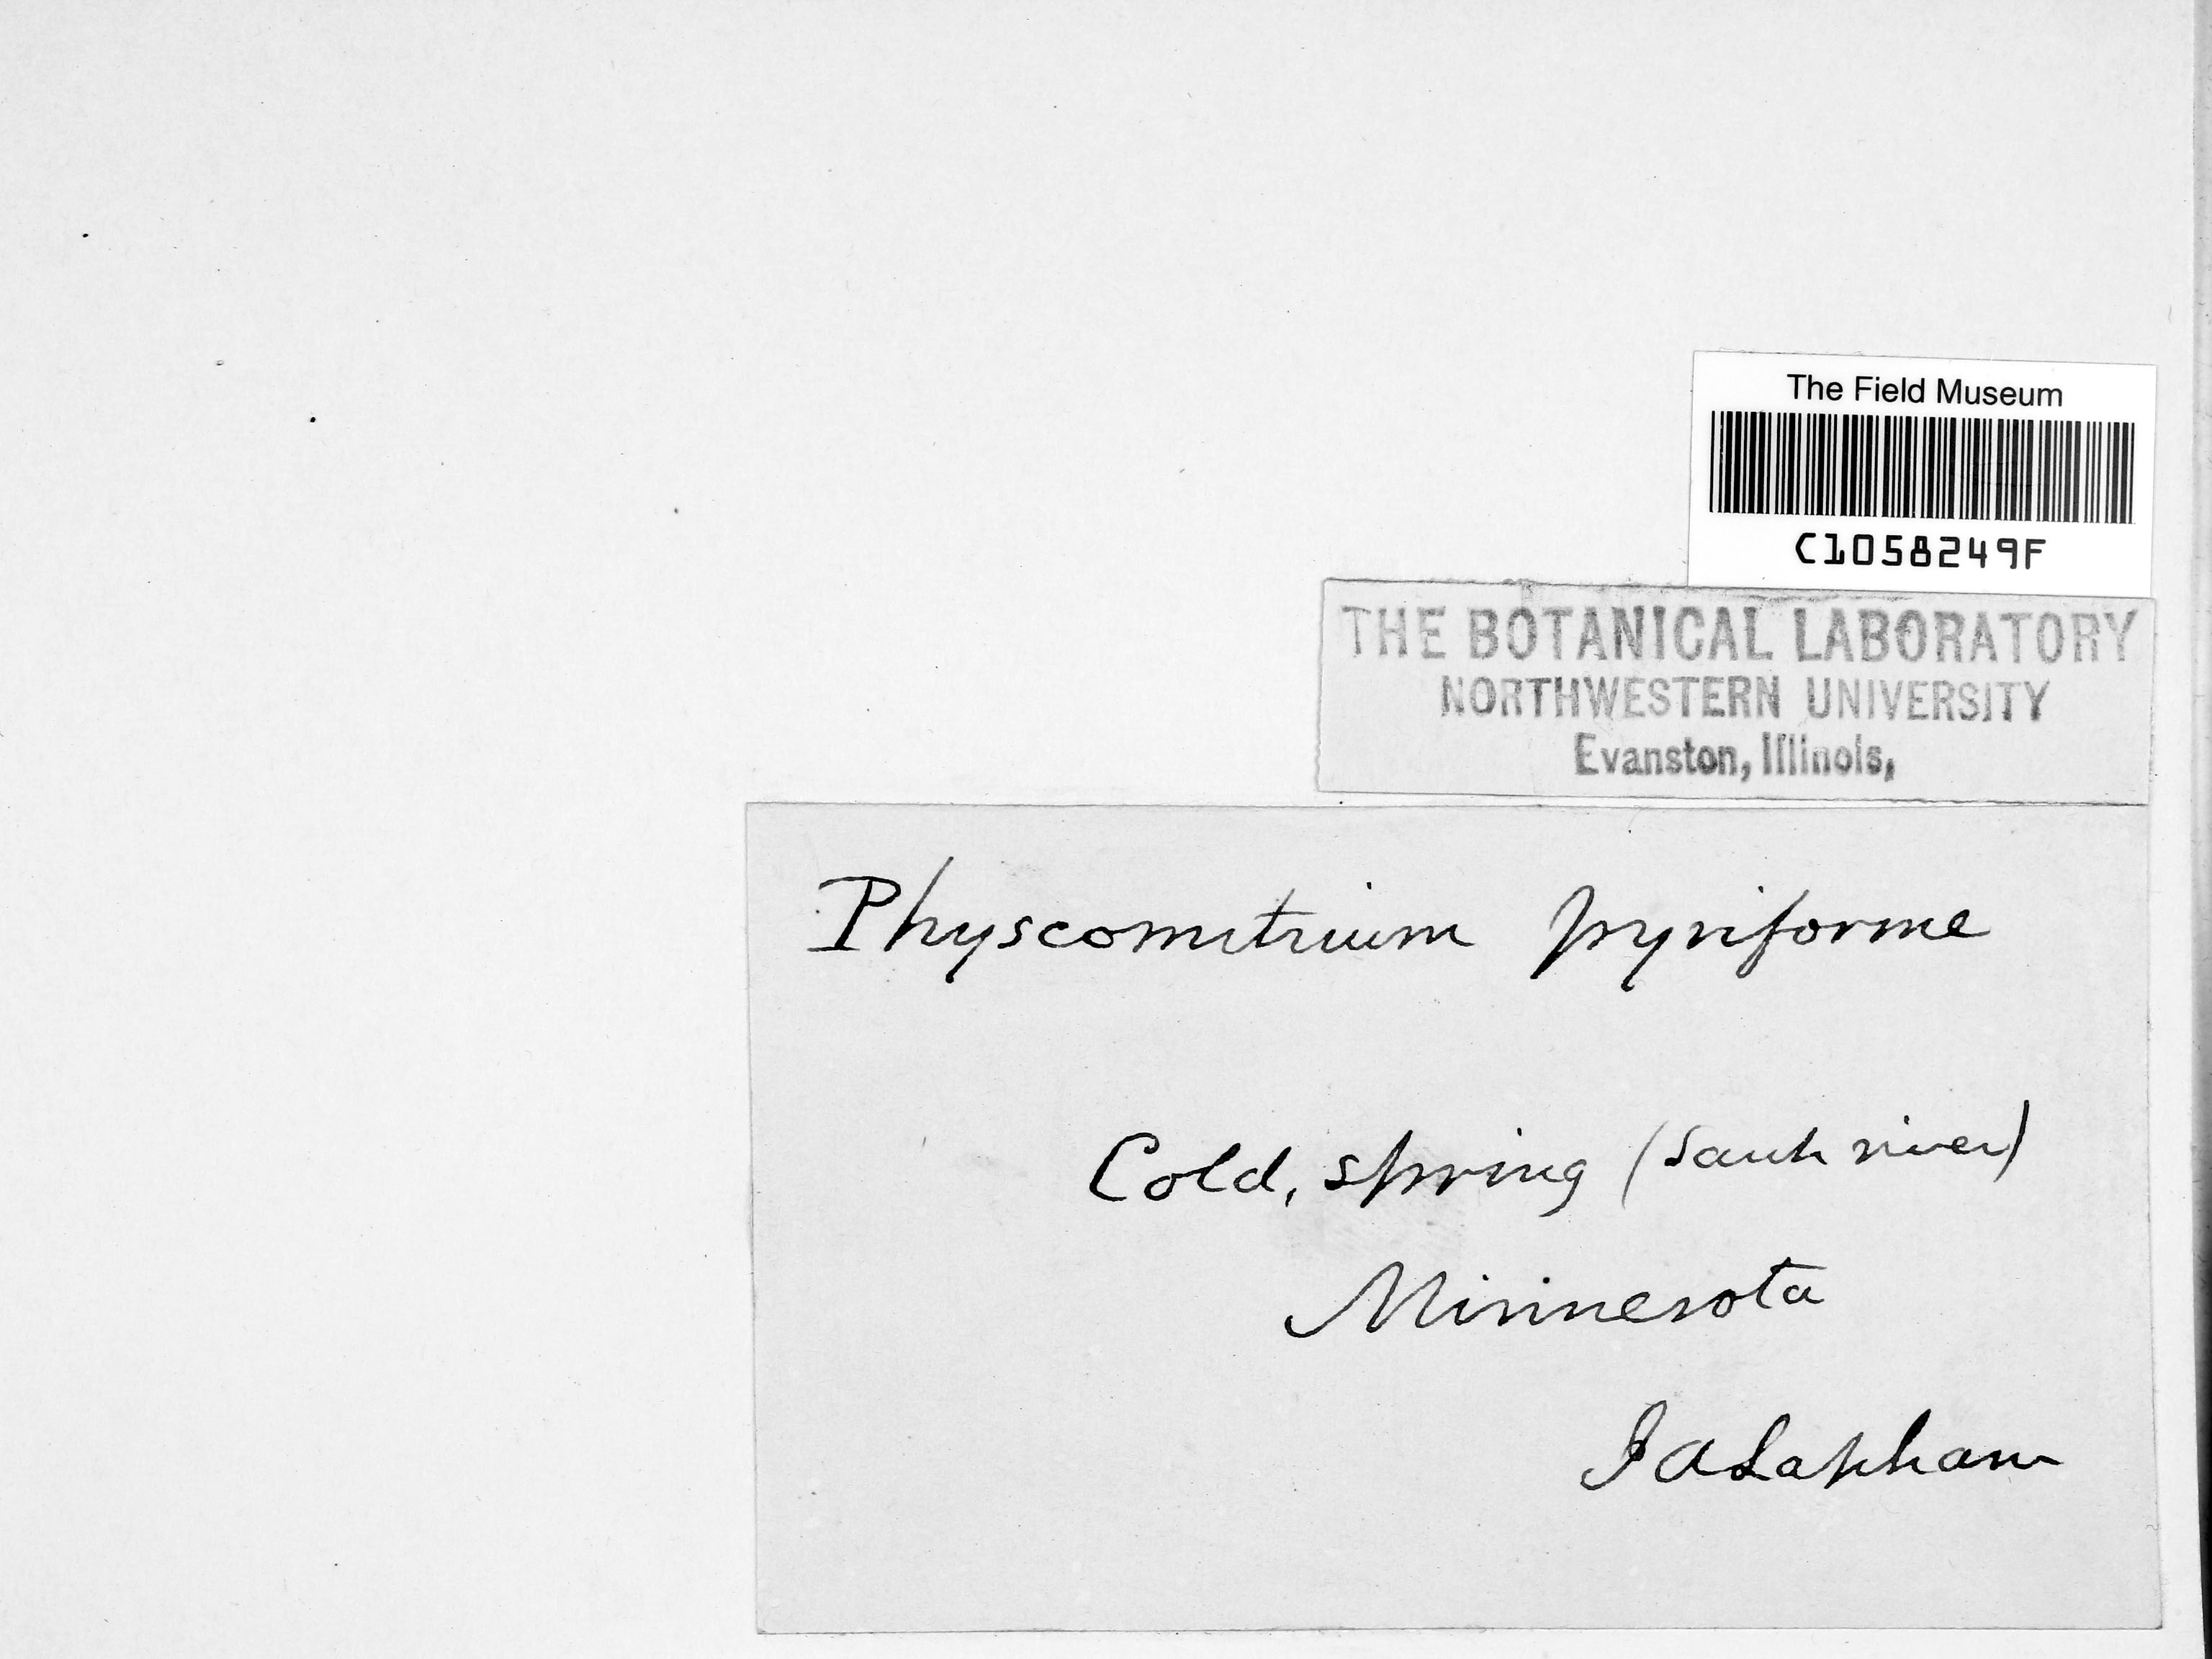 The Field Museum
C1058249F
THE BOTANICAL LABORATORY
NORTHWESTERN UNIVERSITY
Evanston, Illinois,
Physcomitrium pyriforme
Cold, spring (Sauk river)
Minnesota
I A Lapham